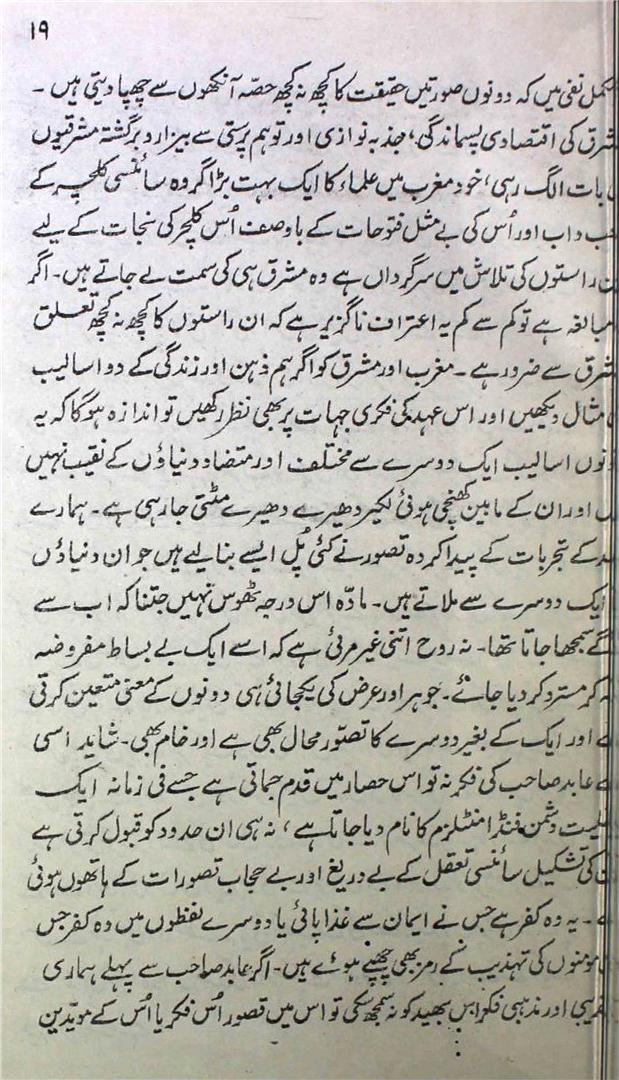 ۱۹
مکمل نفی میں کہ دونوں صورتیں حقیقت کا کچھ نہ کچھ حصّہ آنکھوں سے چھپا دیتی ہیں ۔
مشرق کی اقتصادی پسماندگی، جذبہ نوازی اور توہم پرستی سے بیزار و برگشتہ مشرقیوں
بات الگ رہی، خود مغرب میں علماء کا ایک بہت بڑا گروہ سائنسی کلچر کے
داب اور اُس کی بے مثل فتوحات کے باوصف اُس کلچر کی نجات کے لیے
راستوں کی تلاش میں سرگرداں ہے وہ مشرق ہی کی سمت لے جاتے ہیں۔ اگر
مبالغہ ہے تو کم سے کم یہ اعتراف ناگزیر ہے کہ ان راستوں کا کچھ نہ کچھ تعلق
مشرق سے ضرور ہے ۔ مغرب اور مشرق کو اگر ہم ذہن اور زندگی کے دو اسالیب
مثال دیکھیں اور اس عہد کی فکری جہات پر بھی نظر رکھیں تو اندازہ ہوگا کہ یہ
دونوں اسالیب ایک دوسرے سے مختلف اور متضاد دنیاؤں کے نقیب نہیں
اور ان کے مابین کھنچی ہوئی لکیر دھیرے دھیرے مٹتی جا رہی ہے۔ ہمارے
کے تجربات کے پیدا کردہ تصور نے کئی پُل ایسے بنا لیے ہیں جو ان دنیاؤں
ایک دوسرے سے ملاتے ہیں۔ مادّہ اس درجہ ٹھوس نہیں جتنا کہ اب سے
سمجھا جاتا تھا۔ نہ روح اتنی غیر مرئی ہے کہ اسے ایک بے بساط مفروضہ
کر مسترد کر دیا جائے۔ جوہر اور عرض کی یکجائی ہی دونوں کے معنی متعین کرتی
اور ایک کے بغیر دوسرے کا تصوّر محال بھی ہے اور خام بھی۔ شاید اسی
عابد صاحب کی فکر نہ تو اس حصار میں قدم جماتی ہے جسے فی زمانہ ایک
دشمن فنڈامنٹلزم کا نام دیا جاتا ہے، نہ ہی ان حدود کو قبول کرتی ہے
کی تشکیل سائنسی تعقل کے بے دریغ اور بے حجاب تصورات کے ہاتھوں ہوئی
۔ یہ وہ کفر ہے جس نے ایمان سے غذا پائی یا دوسرے لفظوں میں وہ کفر جس
مومنوں کی تہذیب کے رمز بھی چھپے ہوئے ہیں۔ اگر عابد صاحب سے پہلے ہماری
اور مذہبی فکر اس بھید کو نہ سمجھ سکی تو اس میں قصور اُس فکر یا اُس کے مویّدین